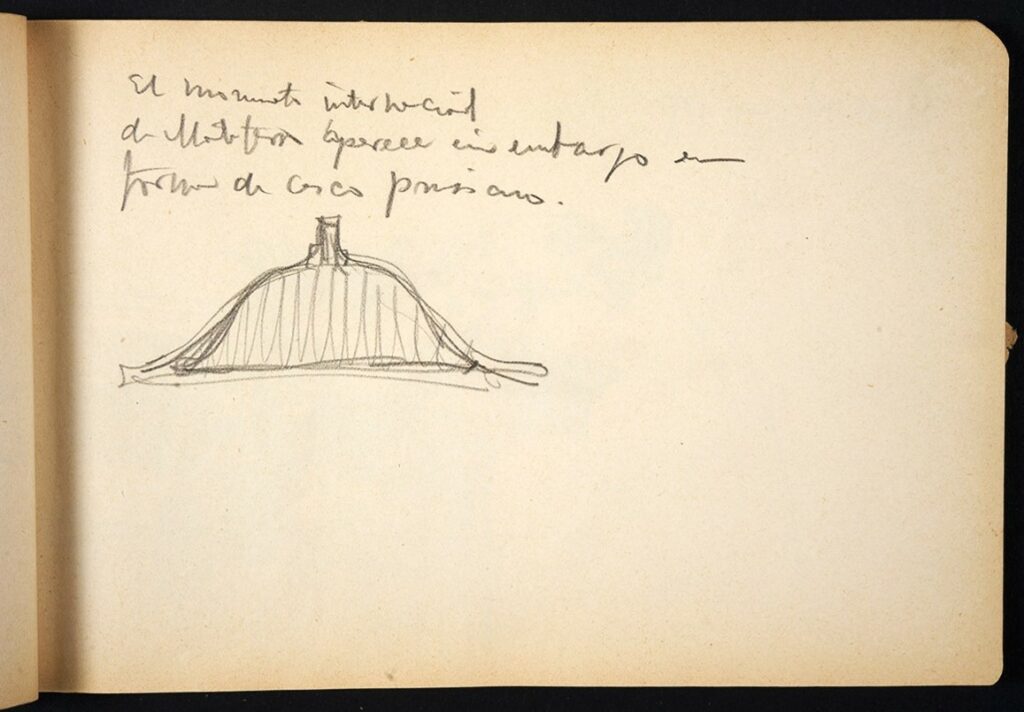 El momento internacional
de aparece sin embargo en
forma de casco prusiano.